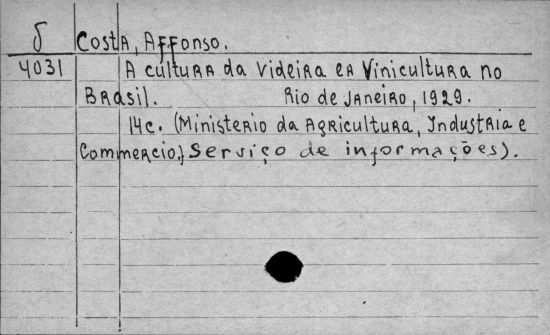 δ Costa, Affonso.
4031 A cultura da Videira e a Vinicultura no
Brasil. Rio de Janeiro, 1929.
14c. (Ministerio da Agricultura, Industria e
Commercio.) Serviço de informações).